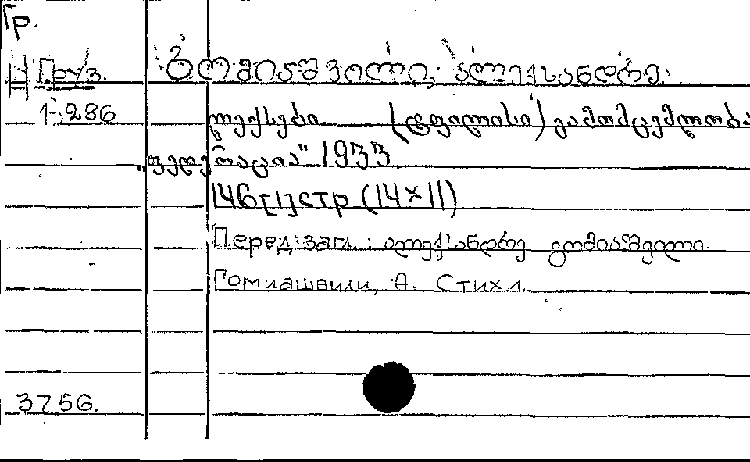 Гр.
Н Груз. გომიაშვილი, ალექსანდრე.
1-286 ლექსები (ტფილისი) გამომცემლობა
„ფედერაცია" 1933
146[1]стр (14×11)
Перед загл.: ალექსანდრე გომიაშვილი
Гомиашвили, А. Стихи.
3756.